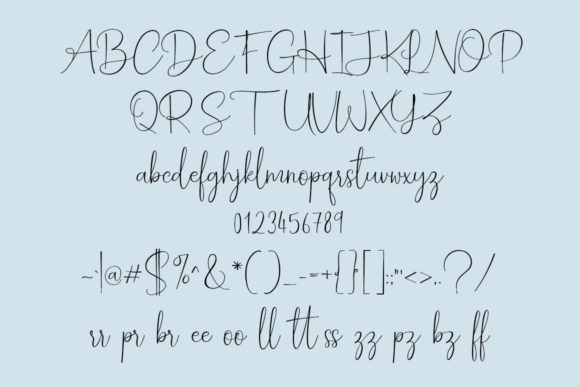 ABCDEFGHIJKLNOP
QRSTUVWXYZ
abcdefghjklmnopqrstuvwxyz
0123456789
~`|@#$%^&*()_-=+{}[]:;"'<>,.?/
rr pr br ee oo ll tt ss zz pz bz ff